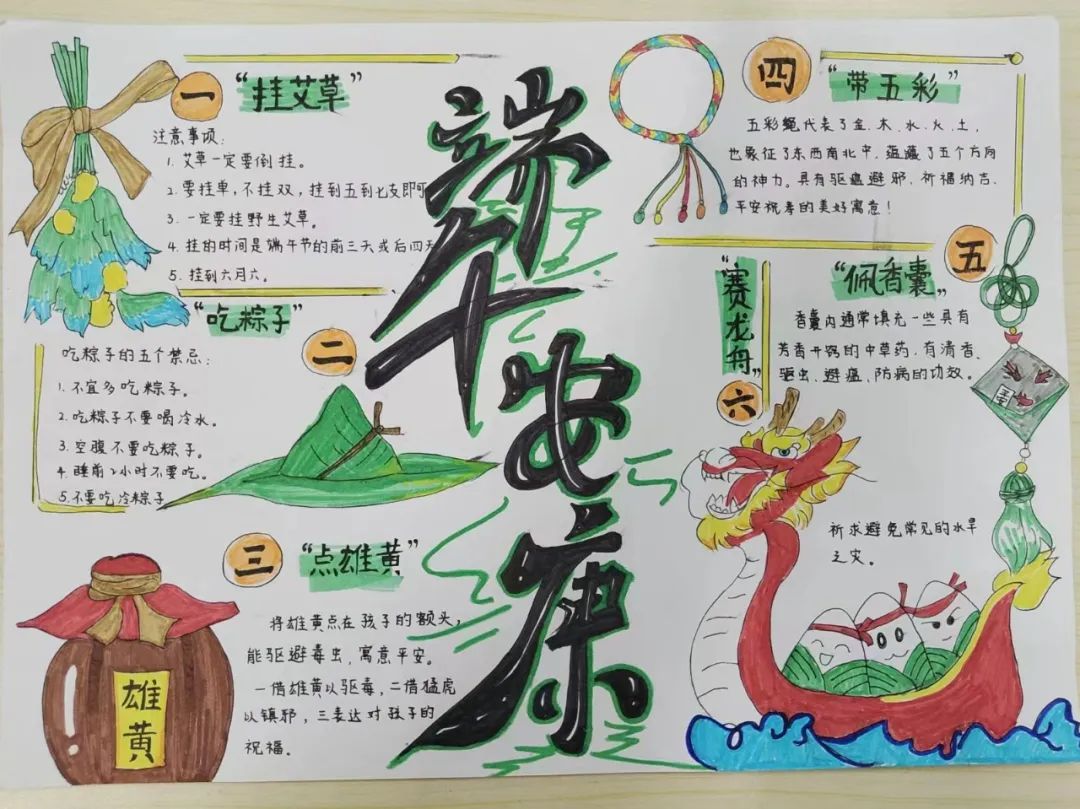 端午安康
一
“挂艾草”
注意事项:
1. 艾草一定要倒挂。
2. 要挂单,不挂双,挂到五到七支即可
3. 一定要挂野生艾草。
4. 挂的时间是端午节的前三天或后四天
5. 挂到六月六。
“吃粽子”
二
吃粽子的五个禁忌:
1. 不宜多吃粽子。
2. 吃粽子不要喝冷水。
3. 空腹不要吃粽子。
4. 睡前2小时不要吃。
5. 不要吃冷粽子
三
“点雄黄”
将雄黄点在孩子的额头,
能驱避毒虫,寓意平安。
一借雄黄以驱毒,二借猛虎
以镇邪,三表达对孩子的
祝福。
雄
黄
四
“带五彩”
五彩绳代表了金、木、水、火、土,
也象征了东西南北中,蕴藏了五个方向
的神力。具有驱瘟避邪、祈福纳吉、
平安祝孝的美好寓意!
五
“佩香囊”
香囊内通常填充一些具有
芳香开窍的中草药,有清香、
驱虫、避瘟、防病的功效。
“赛龙舟”
六
祈求避免常见的水旱
之灾。